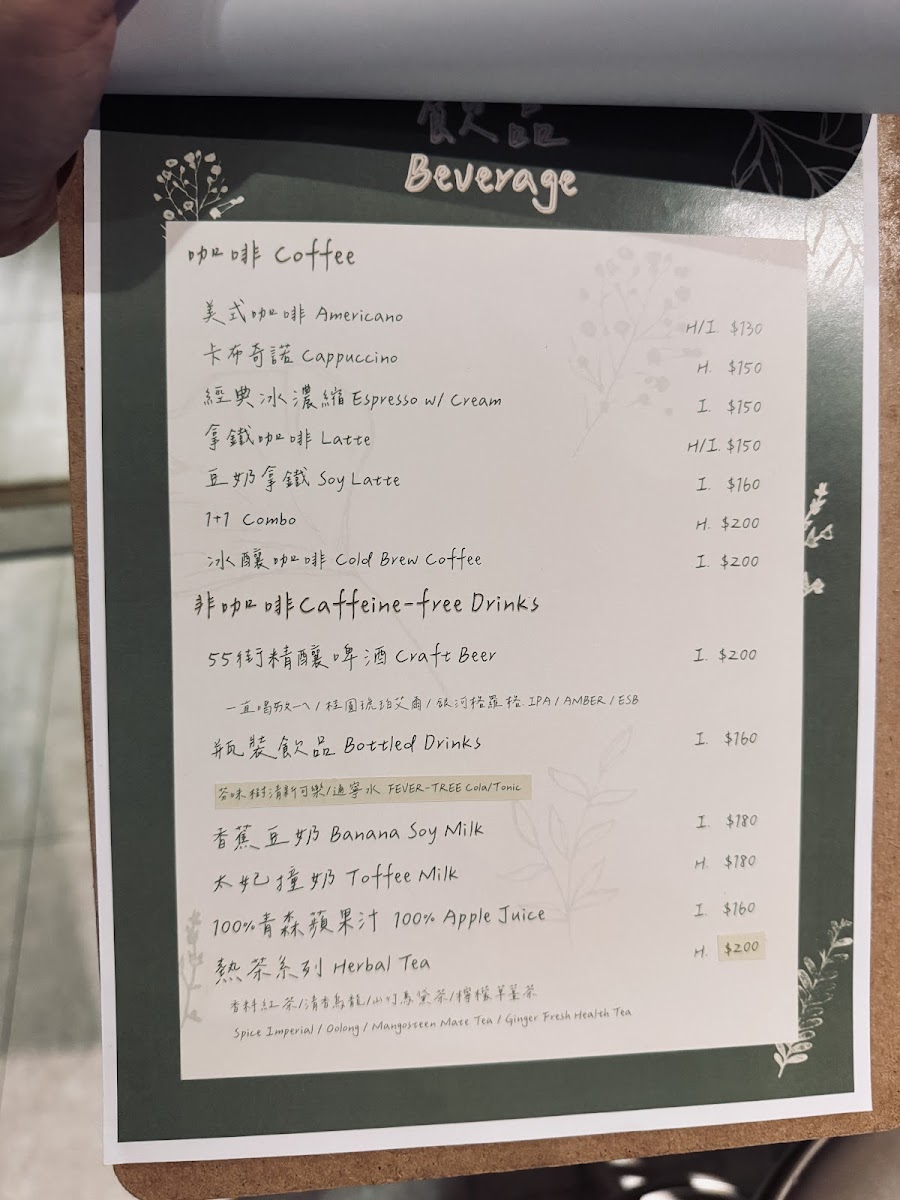 飲品
Beverage
咖啡 Coffee
美式咖啡 Americano H/I. $130
卡布奇諾 Cappuccino H. $150
經典冰濃縮 Espresso w/ Cream I. $150
拿鐵咖啡 Latte H/I. $150
豆奶拿鐵 Soy Latte I. $160
1+1 Combo H. $200
冰釀咖啡 Cold Brew Coffee I. $200
非咖啡 Caffeine-free Drinks
55街精釀啤酒 Craft Beer I. $200
一直唱歌ㄟ/桂圓琥珀艾爾/銀河格羅格 IPA / AMBER / ESB
瓶裝飲品 Bottled Drinks I. $160
芬味樹清新可樂/通寧水 FEVER-TREE Cola/Tonic
香蕉豆奶 Banana Soy Milk I. $180
太妃撞奶 Toffee Milk H. $180
100%青森蘋果汁 100% Apple Juice I. $160
熱茶系列 Herbal Tea H. $200
香料紅茶/清香烏龍/山竹馬黛茶/檸檬草薑茶
Spice Imperial / Oolong / Mangosteen Mate Tea / Ginger Fresh Health Tea